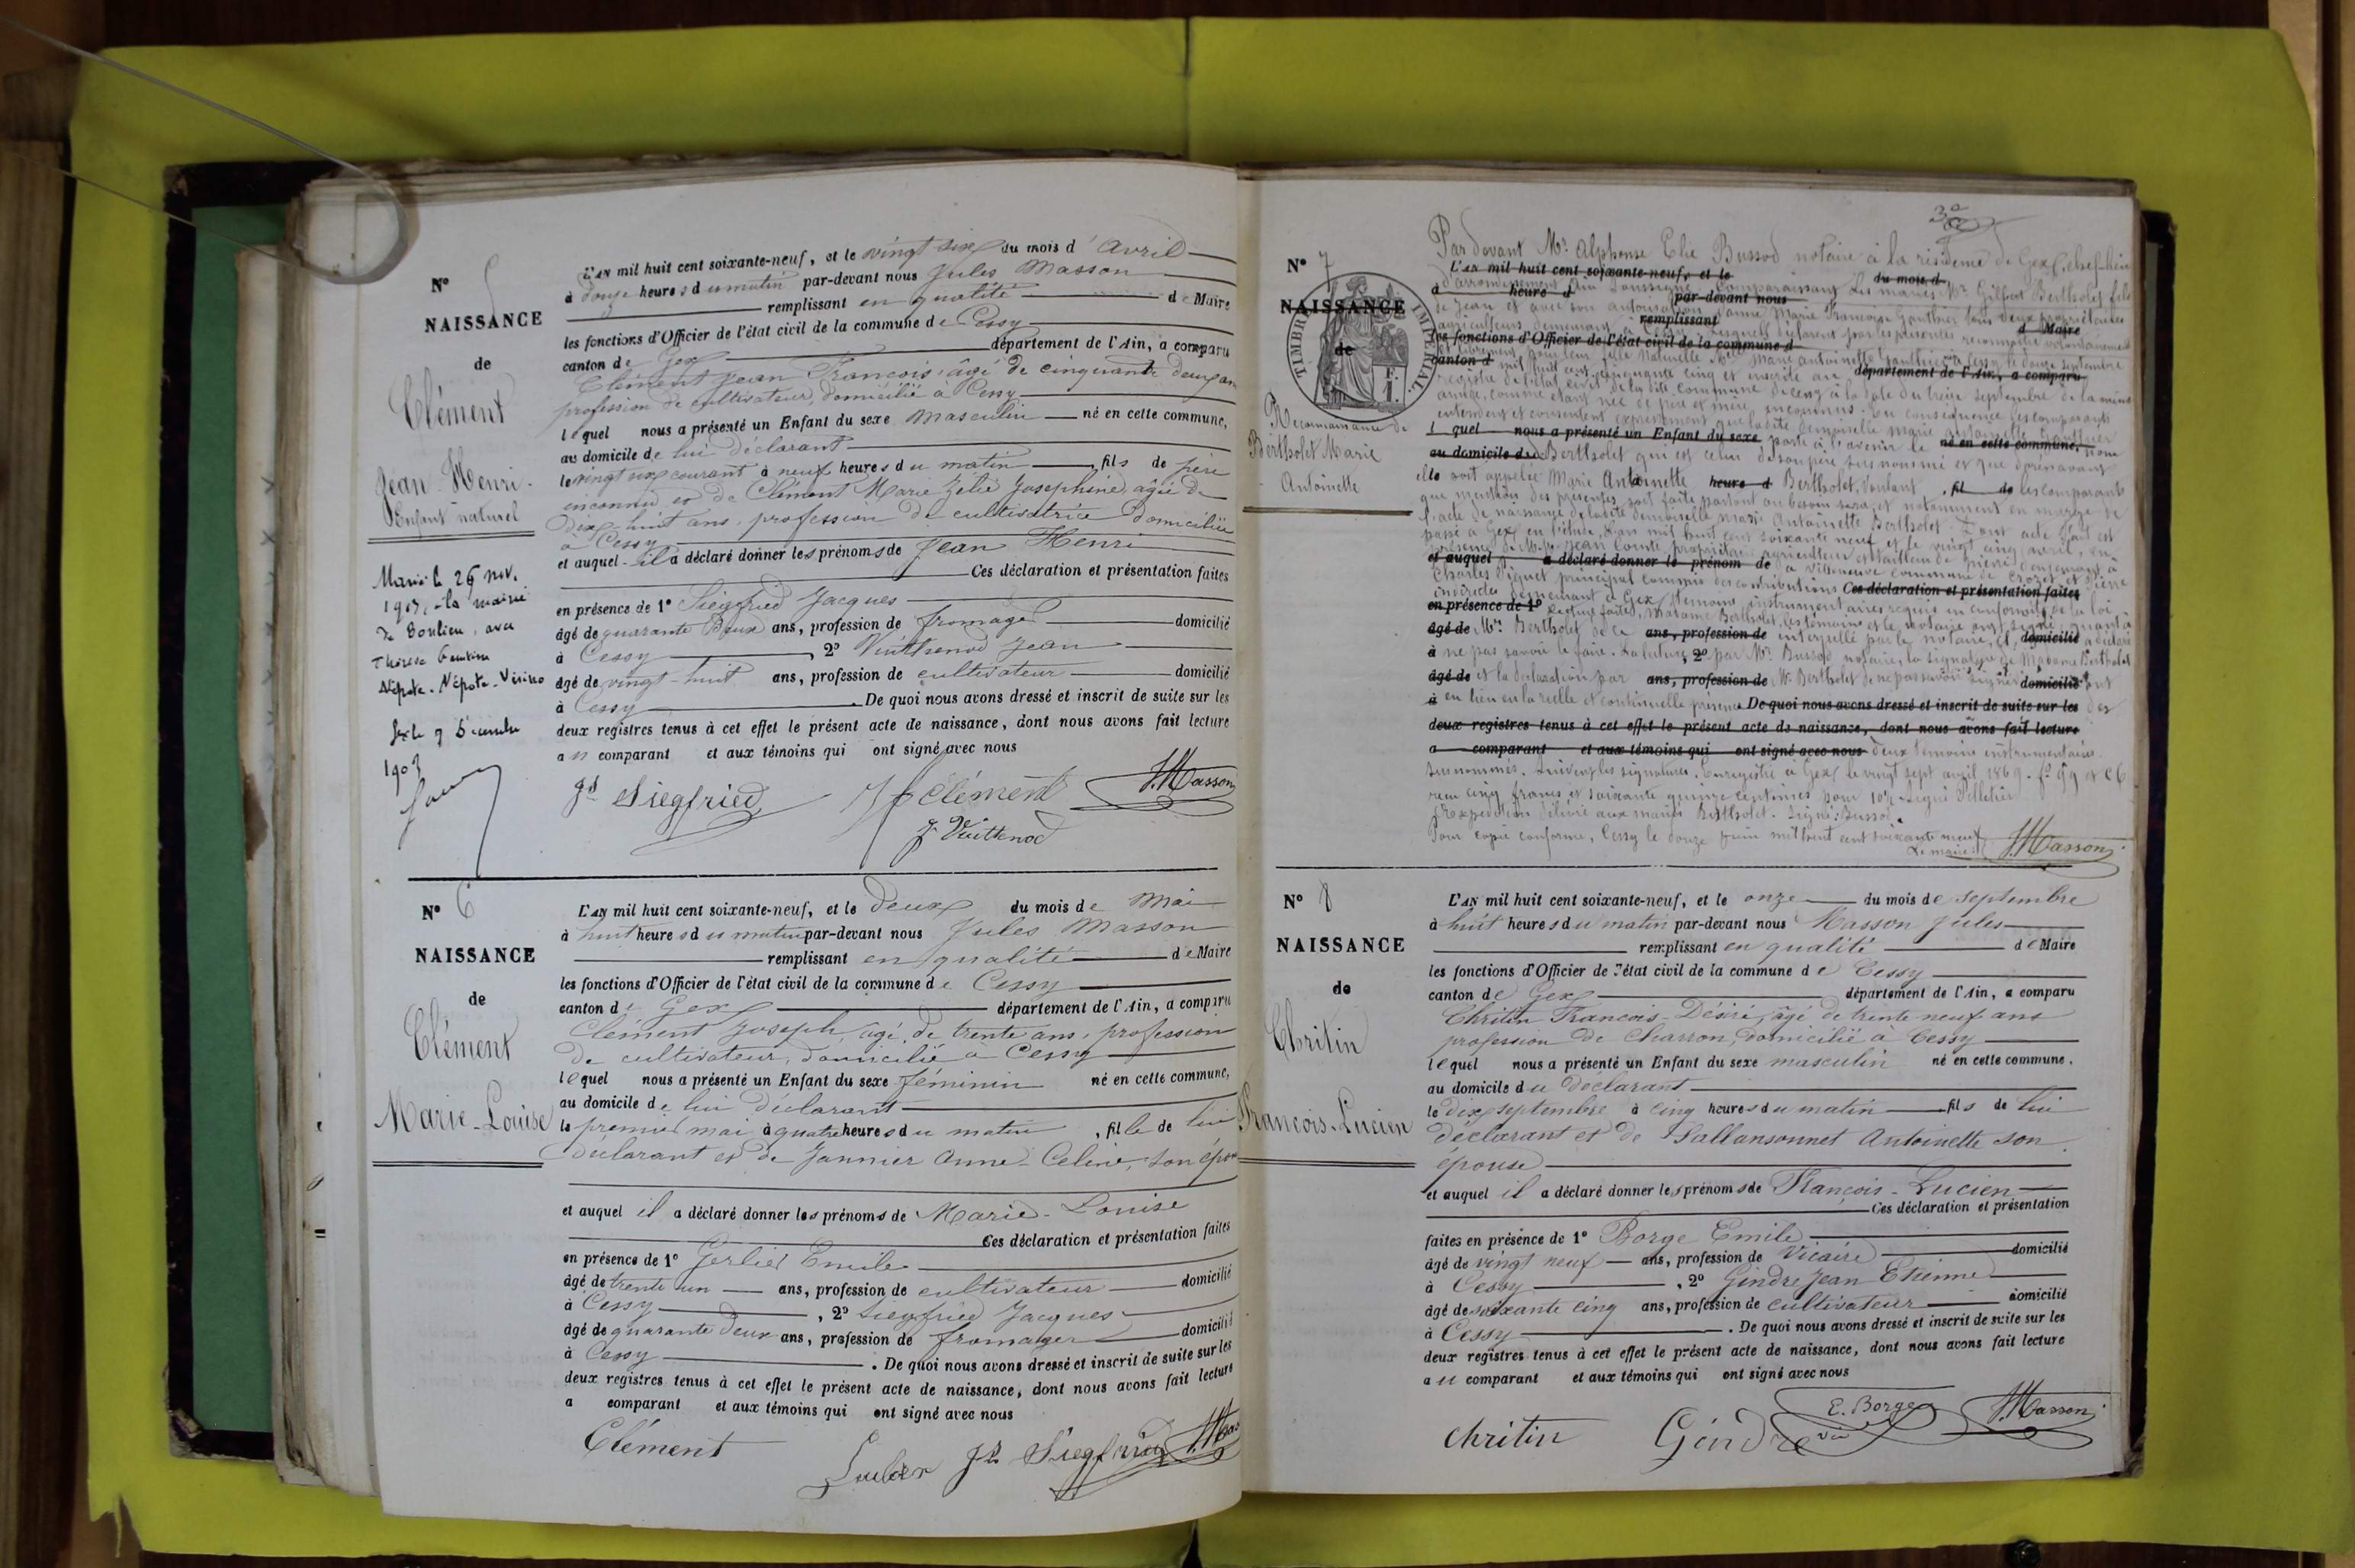 N° 5
NAISSANCE
de
Clément
Jean-Henri
Enfant naturel
Marié le 26 nov.
1903, à la mairie
de
Thérèse
Népote-Népote-Vésino
Gex le 9 Décembre
1903
L'AN mil huit cent soixante-neuf, et le vingt six du mois d'avril
à douze heures du matin par-devant nous Jules Masson
remplissant en qualité de Maire
les fonctions d'Officier de l'état civil de la commune de Cessy
canton de Gex département de l'Ain, a comparu
Clément Jean François, âgé de cinquante deux ans
profession de cultivateur, domicilié à Cessy
lequel nous a présenté un Enfant du sexe masculin né en cette commune,
au domicile de lui déclarant
le vingt six courant à neuf heures du matin, fils de père
inconnu et de Clément Marie Zélie Joséphine, âgée de
dix-huit ans, profession de cultivatrice domiciliée
à Cessy
et auquel il a déclaré donner les prénoms de Jean Henri
Ces déclaration et présentation faites
en présence de 1° Siegfried Jacques
âgé de quarante deux ans, profession de fromager domicilié
à Cessy, 2° Vuithenod Jean
âgé de vingt-huit ans, profession de cultivateur domicilié
à Cessy. De quoi nous avons dressé et inscrit de suite sur les
deux registres tenus à cet effet le présent acte de naissance, dont nous avons fait lecture
au comparant et aux témoins qui ont signé avec nous
Jd Siegfried Clément J. Masson
J. Vuittenod
N° 6
NAISSANCE
de
Clément
Marie-Louise
L'AN mil huit cent soixante-neuf, et le deux du mois de Mai
à huit heures du matin par-devant nous Jules Masson
remplissant en qualité de Maire
les fonctions d'Officier de l'état civil de la commune de Cessy
canton de Gex département de l'Ain, a comparu
Clément Joseph, âgé de trente ans, profession
de cultivateur, domicilié à Cessy
lequel nous a présenté un Enfant du sexe féminin né en cette commune,
au domicile de lui déclarant
le premier mai à quatre heures du matin, fille de lui
déclarant et de Jannier Anne-Celine, son épouse
et auquel il a déclaré donner les prénoms de Marie-Louise
Ces déclaration et présentation faites
en présence de 1° Gerlier Emile
âgé de trente un ans, profession de cultivateur domicilié
à Cessy, 2° Siegfried Jacques
âgé de quarante deux ans, profession de fromager domicilié
à Cessy. De quoi nous avons dressé et inscrit de suite sur les
deux registres tenus à cet effet le présent acte de naissance, dont nous avons fait lecture
a comparant et aux témoins qui ont signé avec nous
Clément
Jd Siegfried J. Mas
N° 7
NAISSANCE
de
TIMBRE IMPÉRIAL
F. 1.
Reconnaissance de
Bertholet Marie
Antoinette
Par devant Mr. Alphonse Elie Bussod notaire à la résidence de Gex, chef-lieu
L'AN mil huit cent soixante-neuf, et le du mois d
d'arrondissement Ain soussigné, comparaissant les mariés Mr. Gilbert Bertholet fils
à heure d par-devant nous
de Jean et avec son autorisation dame Marie Françoise Gauthier tous deux propriétaires
remplissant d Maire
agriculteurs demeurant à Cessy, lesquels déclarent par les présentes reconnaître volontairement
les fonctions d'Officier de l'état civil de la commune d
et librement pour leur fille naturelle Melle Marie Antoinette Gauthier née à Cessy le douze septembre
canton d département de l'Ain, a comparu
mil huit cent cinquante cinq et inscrite au
registre de l'état civil de la dite commune de Cessy à la date du treize septembre de la même
année, comme étant née de père et mère inconnus. En conséquence les comparants
entendent et consentent expressément que la dite demoiselle Marie Antoinette Gauthier
l quel nous a présenté un Enfant du sexe né en cette commune,
porte à l'avenir le nom
au domicile d
de Bertholet qui est celui de son père susnommé et que dorénavant
elle soit appelée Marie Antoinette Bertholet, voulant les comparants
heure d, fil de
que mention des présentes soit faite partout où besoin sera, et notamment en marge de
l'acte de naissance de la dite demoiselle Marie Antoinette Bertholet. Dont acte fait et
passé à Gex, en l'étude, l'an mil huit cent soixante neuf et le vingt cinq avril, en
présence de Mrs. Jean Comte, propriétaire agriculteur et tailleur de pierre, demeurant à
et auquel a déclaré donner le prénom de
à Villeneuve commune de Crozet et Pierre
Charles Piquet principal commis des contributions
Ces déclaration et présentation faites
indirectes demeurant à Gex, témoins instrumentaires requis en conformité de la loi
en présence de 1°
Lecture faite, Madame Bertholet, les témoins et le notaire ont signé, quant à
âgé de ans, profession de domicilié
Mr. Bertholet de ce interpellé par le notaire, il a déclaré
à ne pas savoir le faire. La lecture, 2° par Mr. Bussod notaire, la signature de Madame Bertholet
âgé de ans, profession de domicilié
et la déclaration par Mr. Bertholet de ne pas savoir signer ont
à eu lieu en la réelle et continuelle présence des
De quoi nous avons dressé et inscrit de suite sur les
deux registres tenus à cet effet le présent acte de naissance, dont nous avons fait lecture
a comparant et aux témoins qui ont signé avec nous deux témoins instrumentaires
susnommés. Suivent les signatures. Enregistré à Gex le vingt sept avril 1869. f° 99 r c6
reçu cinq francs et soixante quinze centimes pour 10es. Signé Pelletier
Expédition délivrée aux mariés Bertholet. Signé: Bussod.
Pour copie conforme, Cessy le douze juin mil huit cent soixante neuf
Le maire: J. Masson
N° 8
NAISSANCE
de
Chritin
François-Lucien
L'AN mil huit cent soixante-neuf, et le onze du mois de septembre
à huit heures du matin par-devant nous Masson Jules
remplissant en qualité de Maire
les fonctions d'Officier de l'état civil de la commune de Cessy
canton de Gex département de l'Ain, a comparu
Chritin François-Désiré, âgé de trente neuf ans
profession de Charron, domicilié à Cessy
lequel nous a présenté un Enfant du sexe masculin né en cette commune.
au domicile du déclarant
le dix septembre à cinq heures du matin fils de lui
déclarant et de Sallansonnet Antoinette son
épouse
et auquel il a déclaré donner les prénoms de François-Lucien
Ces déclaration et présentation
faites en présence de 1° Borge Emile
âgé de vingt neuf ans, profession de Vicaire domicilié
à Cessy, 2° Gindre Jean Etienne
âgé de soixante cinq ans, profession de cultivateur domicilié
à Cessy. De quoi nous avons dressé et inscrit de suite sur les
deux registres tenus à cet effet le présent acte de naissance, dont nous avons fait lecture
au comparant et aux témoins qui ont signé avec nous
chritin Gindre E. Borge vic J. Masson